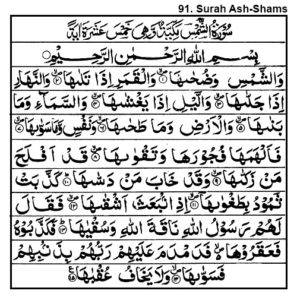 91. Surah Ash-Shams
سُورَةُ الشَّمْسِ مَكِّيَّةٌ وَّهِيَ خَمْسَ عَشَرَةَ اٰيَةً
بِسْمِ اللهِ الرَّحْمٰنِ الرَّحِيْمِ
وَالشَّمْسِ وَضُحٰىهَا ۝١ وَالْقَمَرِ اِذَا تَلٰىهَا ۝٢ وَالنَّهَارِ
اِذَا جَلّٰىهَا ۝٣ وَالَّيْلِ اِذَا يَغْشٰىهَا ۝٤ وَالسَّمَآءِ وَمَا
بَنٰىهَا ۝٥ وَالْاَرْضِ وَمَا طَحٰىهَا ۝٦ وَنَفْسٍ وَّمَا سَوّٰىهَا ۝٧
فَاَلْهَمَهَا فُجُوْرَهَا وَتَقْوٰىهَا ۝٨ قَدْ اَفْلَحَ
مَنْ زَكّٰىهَا ۝٩ وَقَدْ خَابَ مَنْ دَسّٰىهَا ۝١٠ كَذَّبَتْ
ثَمُوْدُ بِطَغْوٰىهَا ۝١١ اِذِ انْۢبَعَثَ اَشْقٰىهَا ۝١٢ فَقَالَ
لَهُمْ رَسُوْلُ اللهِ نَاقَةَ اللهِ وَسُقْيٰهَا ۝١٣ فَكَذَّبُوْهُ
فَعَقَرُوْهَا فَدَمْدَمَ عَلَيْهِمْ رَبُّهُمْ بِذَنْۢبِهِمْ
فَسَوّٰىهَا ۝١٤ وَلَا يَخَافُ عُقْبٰهَا ۝١٥